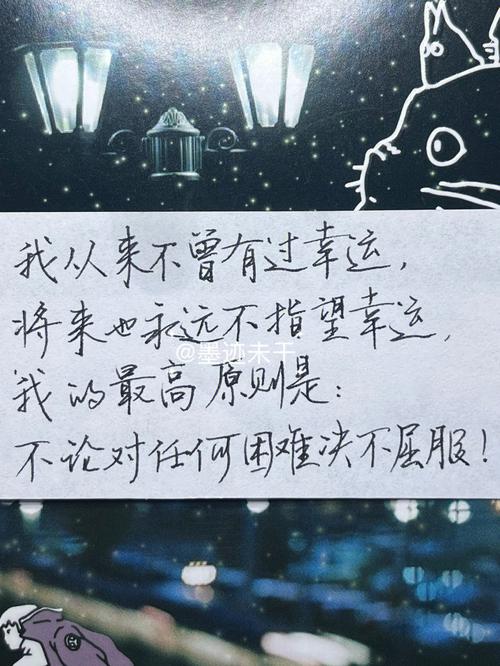 我从来不曾有过幸运,
将来也永远不指望幸运,
@墨迹未干
我的最高原则是:
不论对任何困难决不屈服!